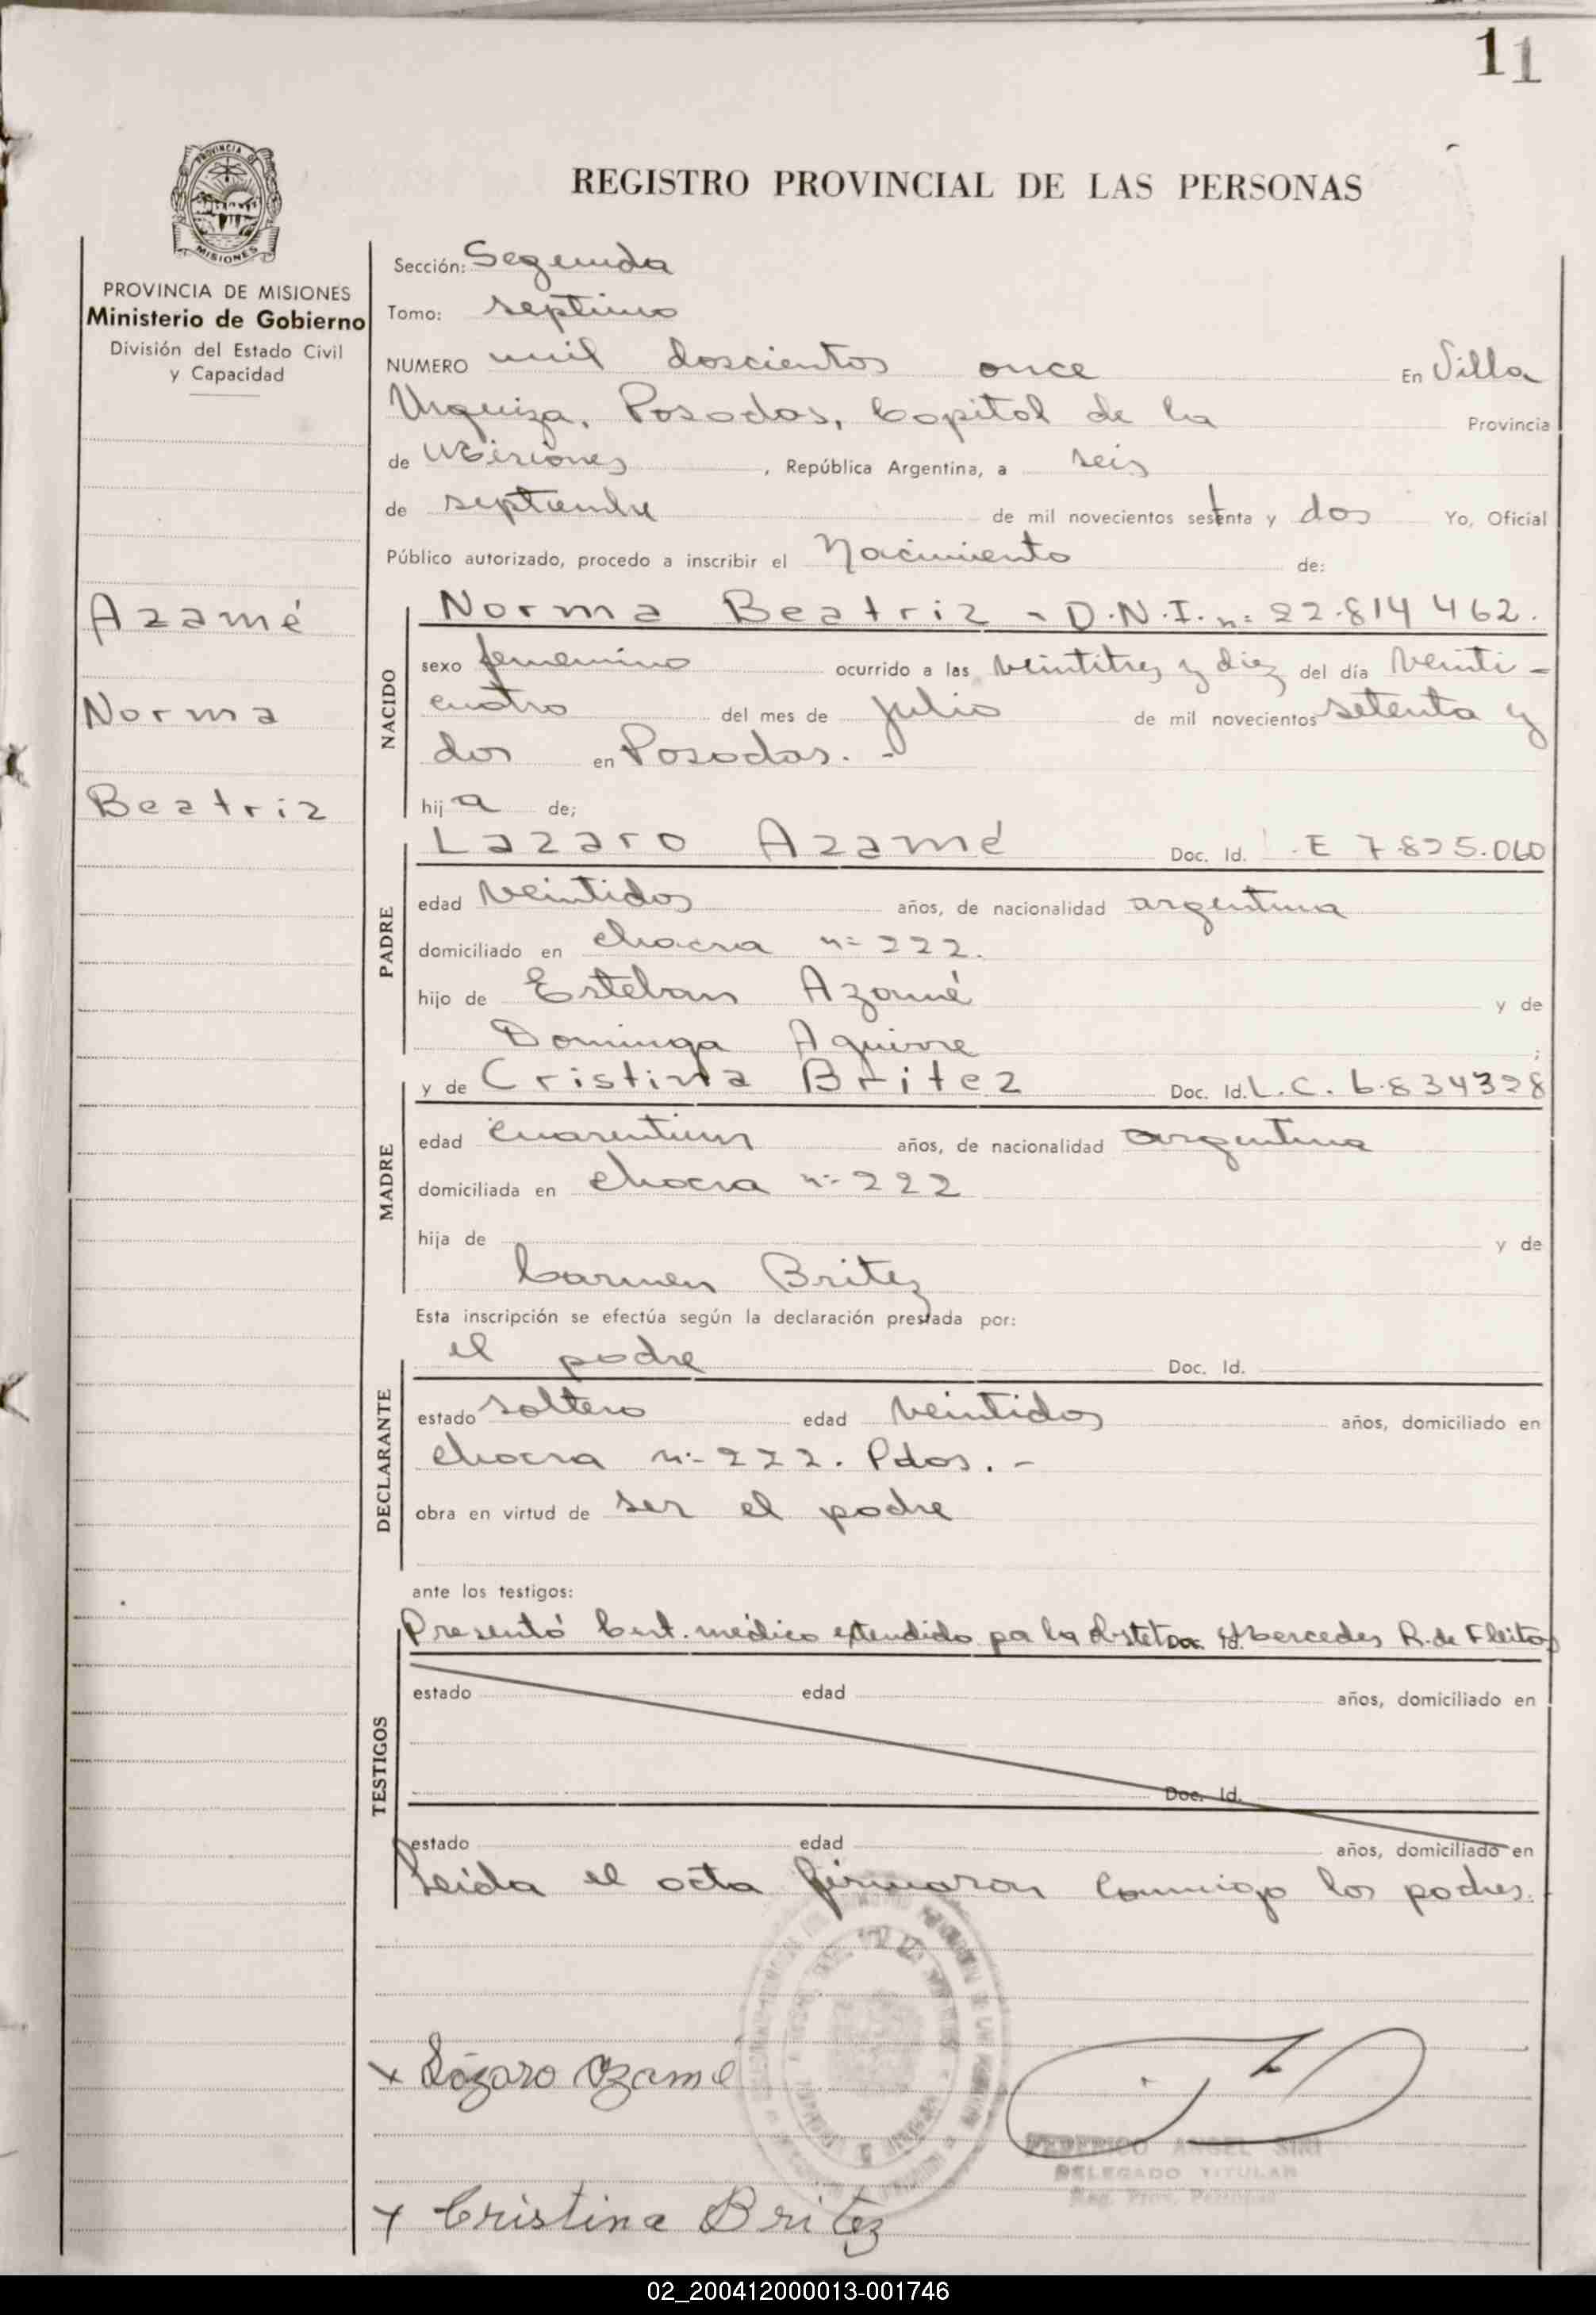 11
PROVINCIA DE
MISIONES
REGISTRO PROVINCIAL DE LAS PERSONAS
PROVINCIA DE MISIONES
Ministerio de Gobierno
División del Estado Civil
y Capacidad
Azamé
Norma
Beatriz
Sección: Segunda
Tomo: septimo
NUMERO mil doscientos once En Villa
Urquiza, Posadas, Capital de la Provincia
de Misiones, República Argentina, a seis
de septiembre de mil novecientos setenta y dos Yo, Oficial
Público autorizado, procedo a inscribir el Nacimiento de:
NACIDO
Norma Beatriz - D.N.I. n= 22.814 462.
sexo femenino ocurrido a las veintitres y diez del día veinti-
cuatro del mes de julio de mil novecientos setenta y
dos en Posadas. -
hija de;
PADRE
Lazaro Azamé Doc. Id. E 7.825.060
edad veintidos años, de nacionalidad argentina
domiciliado en chacra n= 222.
hijo de Esteban Azamé y de
Dominga Aguirre ;
MADRE
y de Cristina Britez Doc. Id. L.C. 6.834328
edad años, de nacionalidad argentina
domiciliada en chacra n= 222
hija de y de
Carmen Britez
Esta inscripción se efectúa según la declaración prestada por:
DECLARANTE
el padre Doc. Id.
estado soltero edad veintidos años, domiciliado en
chacra n=222. Pdas. -
obra en virtud de ser el padre
ante los testigos:
TESTIGOS
Presentó Cert. médico extendido por la Obstet. Doc. Id. Mercedes R. de Fleitas
estado edad años, domiciliado en
Doc. Id.
estado edad años, domiciliado en
Leida el acta firmaron conmigo los padres.
x Lázaro Azamé
FEDERICO ANGEL SIRI
DELEGADO TITULAR
Reg. Prov. Personas
x Cristina Britez
02_200412000013-001746